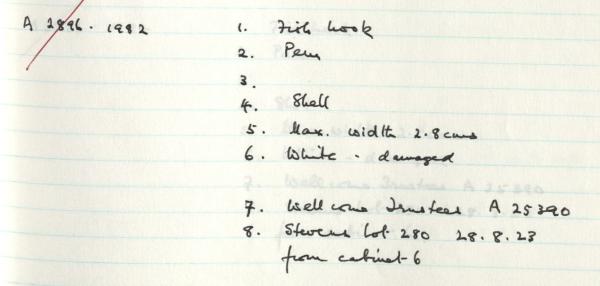 A 2896. 1982 1. Fish hook
2. Peru
3.
4. Shell
5. Max. width 2.8cms
6. White - damaged
7. Wellcome Trustees A 25390
8. Stevens Lot 280 28.8.23
from cabinet 6